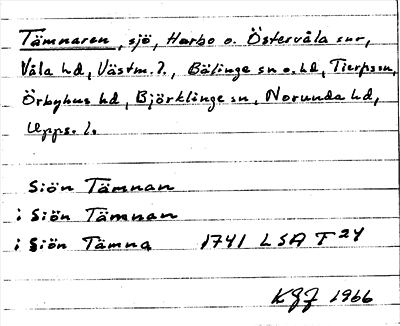 Tämnaren, sjö, Harbo o. Östervåla snr,
Våla hd, Västm. l., Bälinge sn o. hd, Tierps sn,
Örbyhus hd, Björklinge sn, Norunda hd,
Upps. l.
Siön Tämnan
i Siön Tämnan
i Siön Tämna 1741 LSA F 24
KGJ 1966